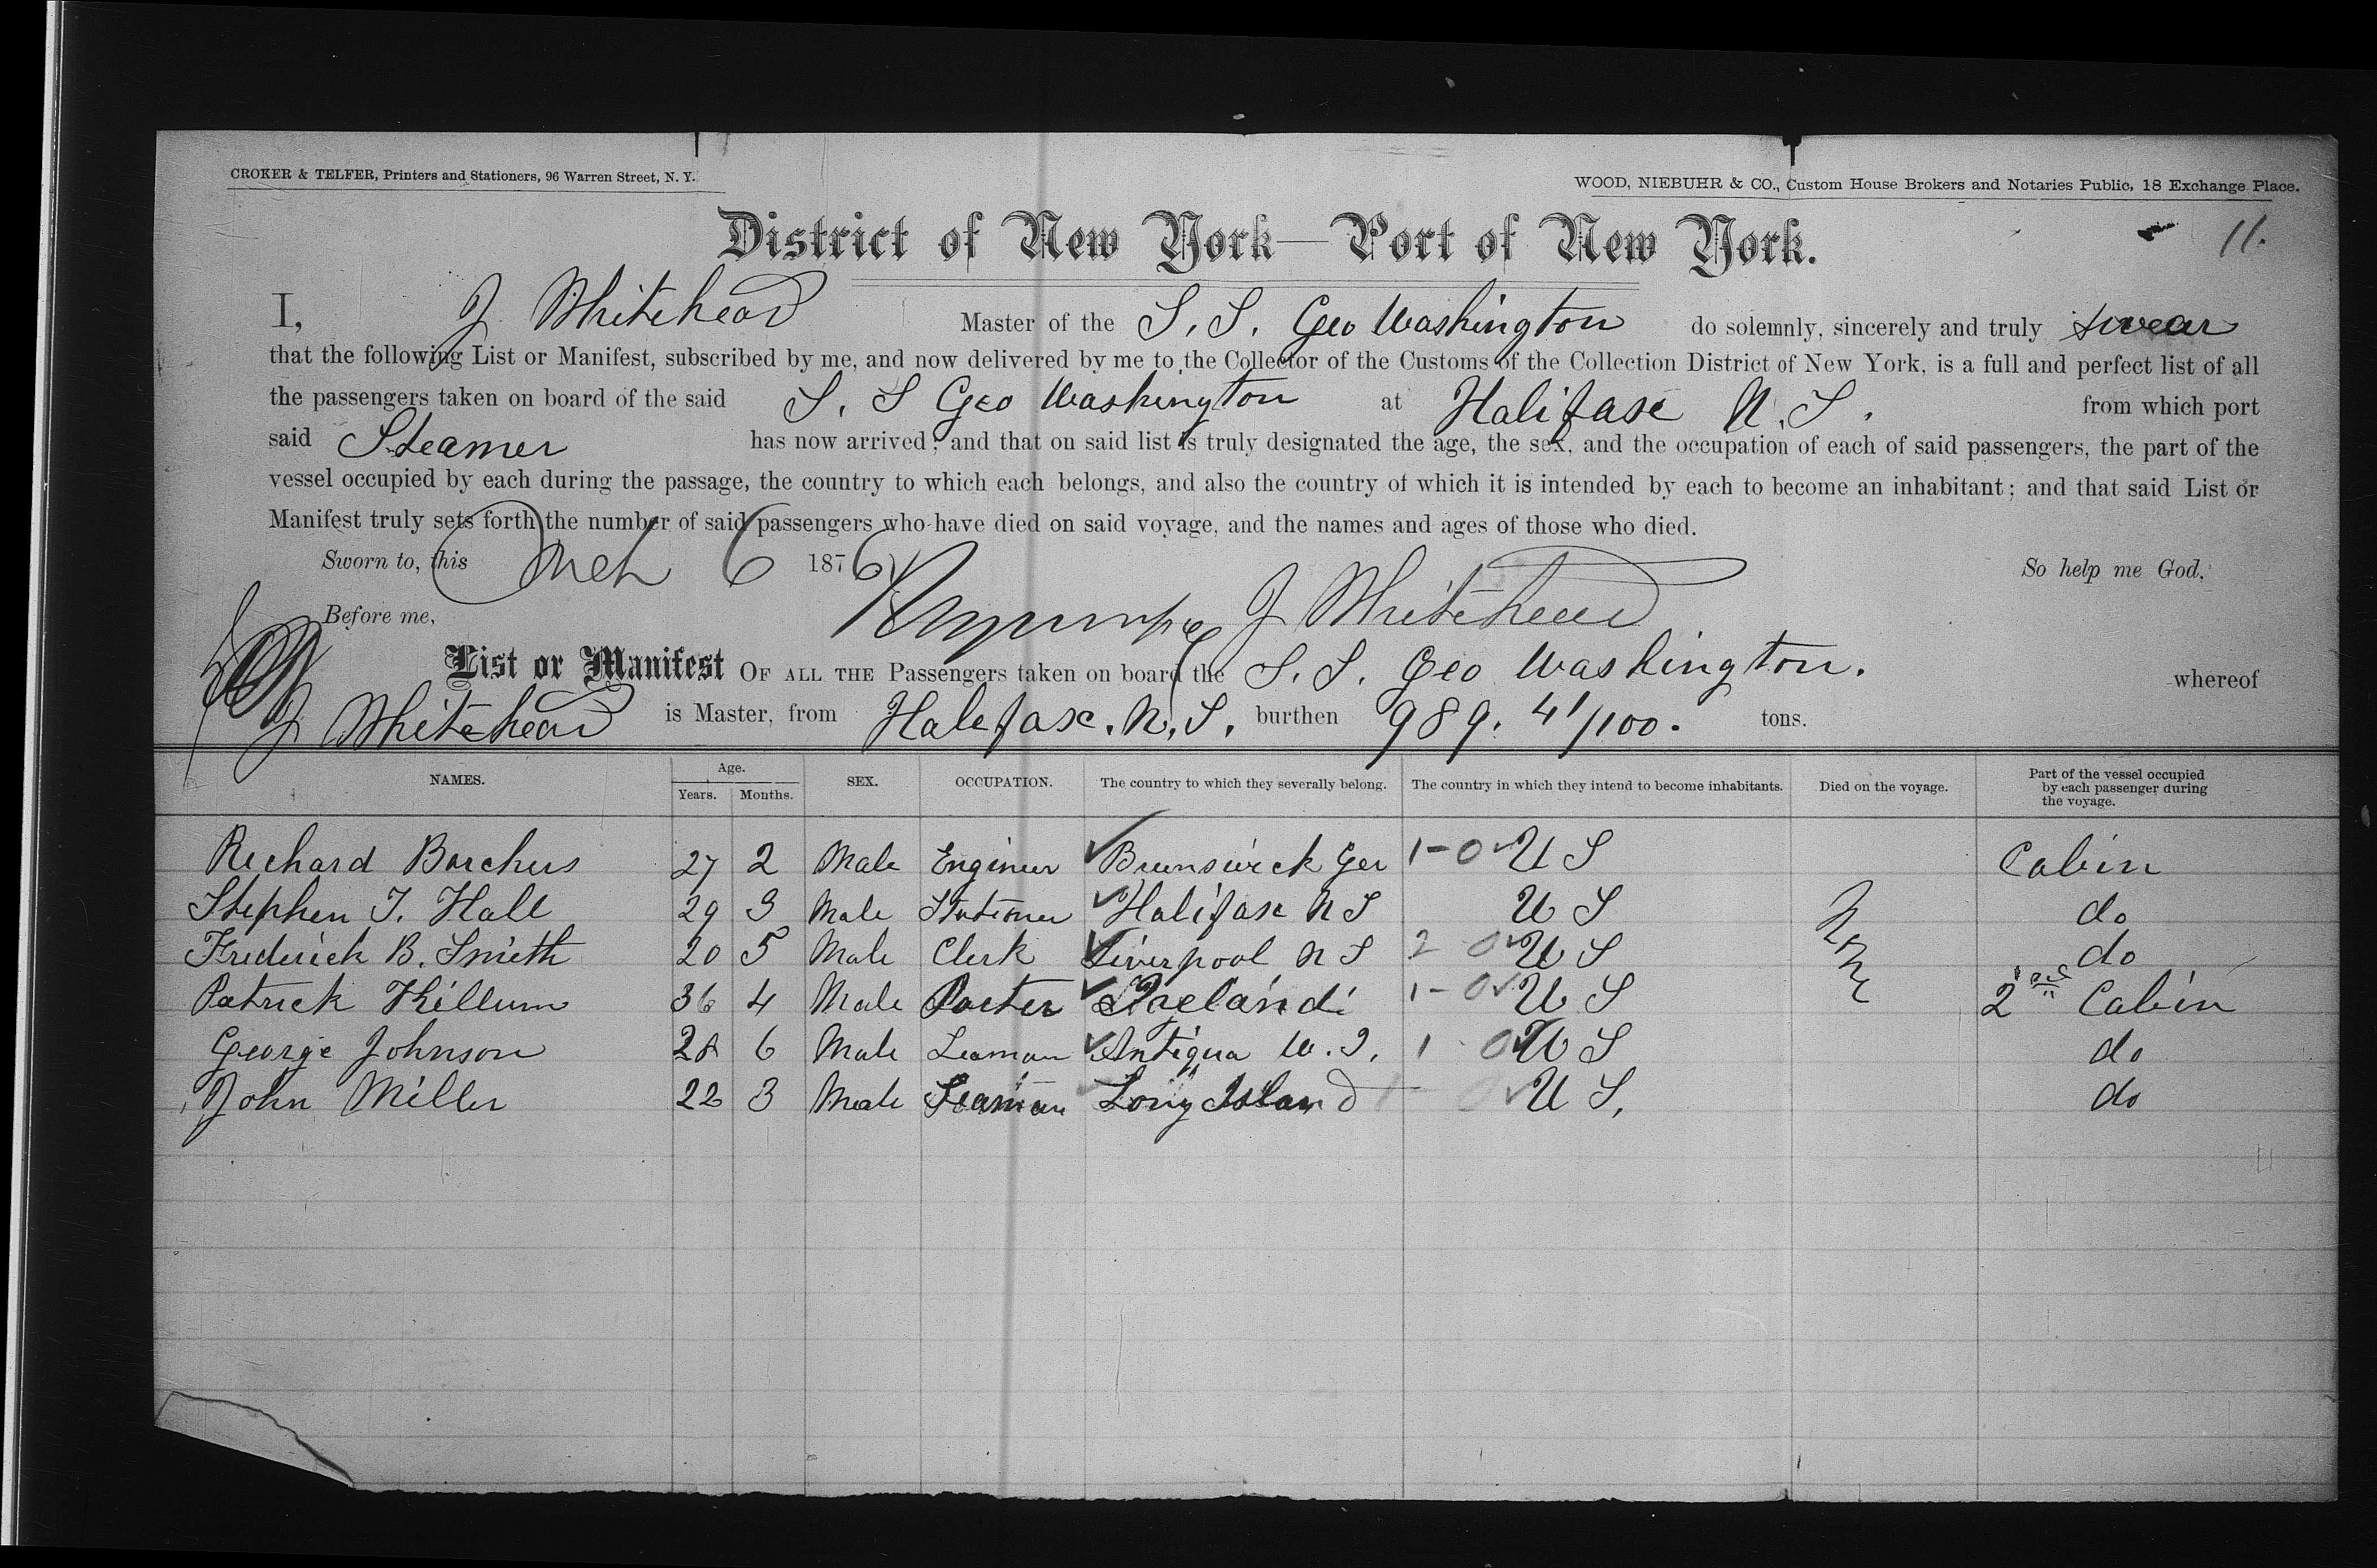 CROKER & TELFER, Printers and Stationers, 96 Warren Street, N. Y.
WOOD, NIEBUHR & CO., Custom House Brokers and Notaries Public, 18 Exchange Place.
11.
District of New York—Port of New York.
I, J Whitehead Master of the S. S. Geo Washington do solemnly, sincerely and truly swear
that the following List or Manifest, subscribed by me, and now delivered by me to the Collector of the Customs of the Collection District of New York, is a full and perfect list of all
the passengers taken on board of the said S. S Geo Washington at Halifax N. S. from which port
said Steamer has now arrived; and that on said list is truly designated the age, the sex, and the occupation of each of said passengers, the part of the
vessel occupied by each during the passage, the country to which each belongs, and also the country of which it is intended by each to become an inhabitant; and that said List or
Manifest truly sets forth the number of said passengers who have died on said voyage, and the names and ages of those who died.
Sworn to, this Mch 6 1876 So help me God.
Before me, J Whitehead
List or Manifest OF ALL THE Passengers taken on board the S. S. Geo Washington. whereof
J Whitehead is Master, from Halifax. N. S. burthen 989. 41/100. tons.
NAMES. Age. Years. Months. SEX. OCCUPATION. The country to which they severally belong. The country in which they intend to become inhabitants. Died on the voyage. Part of the vessel occupied by each passenger during the voyage.
Richard Borchers 27 2 Male Engineer Brunswick Ger 1-0 U S Cabin
Stephen T. Hall 29 3 Male Stationer Halifax N S U S do
Frederick B. Smith 20 5 Male Clerk Liverpool N S 2 0 U S do
None
Patrick Killum 36 4 Male Porter Ireland 1-0 U S 2nd Cabin
George Johnson 28 6 Male Seaman Antigua W. I. 1 0 U S do
John Miller 22 3 Male Seaman Long Island U S. do